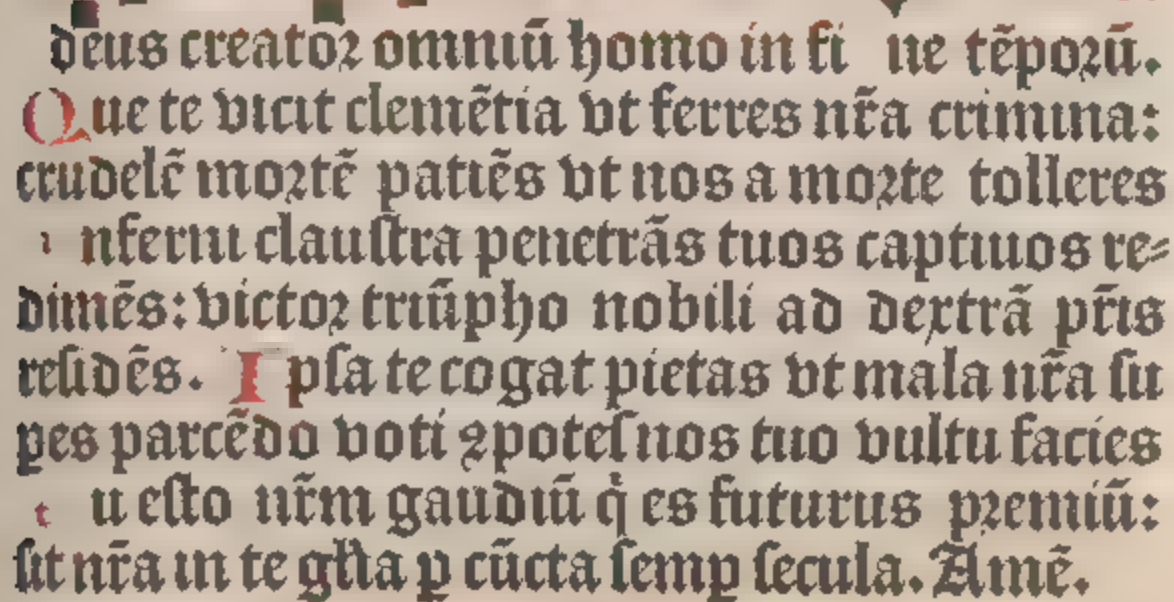 deus creator omniū homo in fi ne tēporū.
Que te vicit clemētia vt ferres nr̄a crimina:
crudelē mortē patiēs vt nos a morte tolleres
inferni clauſtra penetrās tuos captiuos re⸗
dimēs: victor triūpho nobili ad dextrā pr̄is
reſidēs. Ipſa te cogat pietas vt mala nr̄a ſu
pes parcēdo voti ꝯpoteſ nos tuo vultu facies
tu eſto nr̄m gaudiū q̇ es futurus premiū:
ſit nr̄a in te gl̄ia ꝑ cūcta ſemꝑ ſecula. Amē.